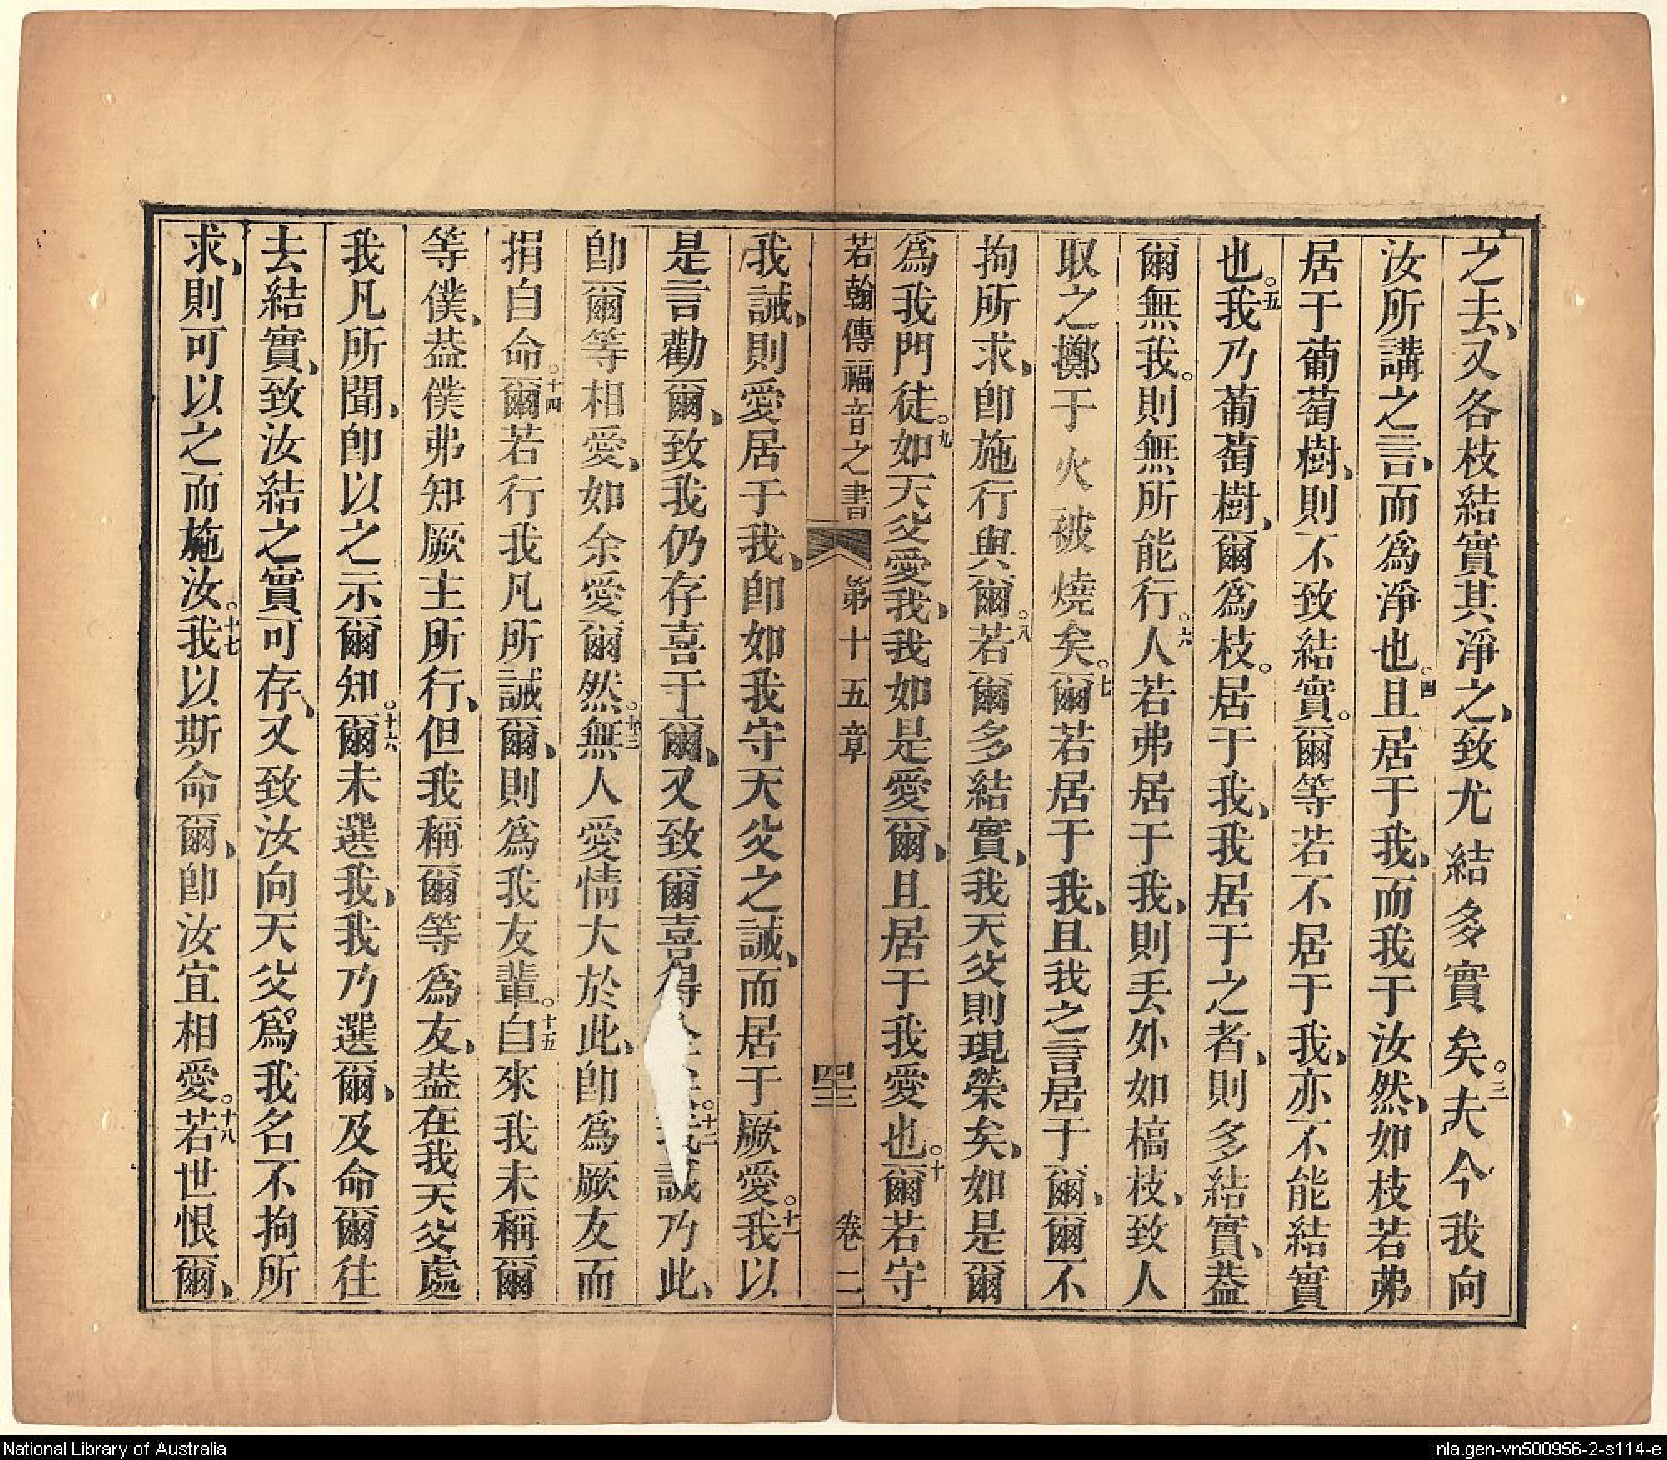 之去、又各枝結實其淨之、致尤結多實矣。三夫今我向
汝所講之言、而爲淨也。四且居于我、而我于汝然、如枝若弗
居于葡萄樹、則不致結實。爾等若不居于我、亦不能結實
也。五我乃葡萄樹、爾爲枝。居于我、我居于之者、則多結實、葢
爾無我。則無所能行。六人若弗居于我、則丟外如槁枝、致人
取之擲于火被燒矣。七爾若居于我、且我之言居于爾、爾不
拘所求、卽施行與爾。八若爾多結實、我天父則現榮矣、如是爾
爲我門徒。九如天父愛我、我如是愛爾、且居于我愛也。十爾若守
若翰傳福音之書 第十五章 四三 卷二
我誡、則愛居于我、卽如我守天父之誡、而居于厥愛。十一我以
是言勸爾、致我仍存喜于爾、又致爾喜得 十二 誡乃此、
卽爾等相愛、如余愛爾然。十三無人愛情大於此、卽爲厥友而
捐自命。十四爾若行我凡所誡爾、則爲我友輩。十五自來我未稱爾
等僕、葢僕弗知厥主所行、但我稱爾等爲友、葢在我天父處
我凡所聞、卽以之示爾知。十六爾未選我、我乃選爾、及命爾往
去結實、致汝結之實可存、又致汝向天父爲我名不拘所
求、則可以之而施汝。十七我以斯命爾、卽汝宜相愛。十八若世恨爾、
National Library of Australia
nla.gen-vn500956-2-s114-e